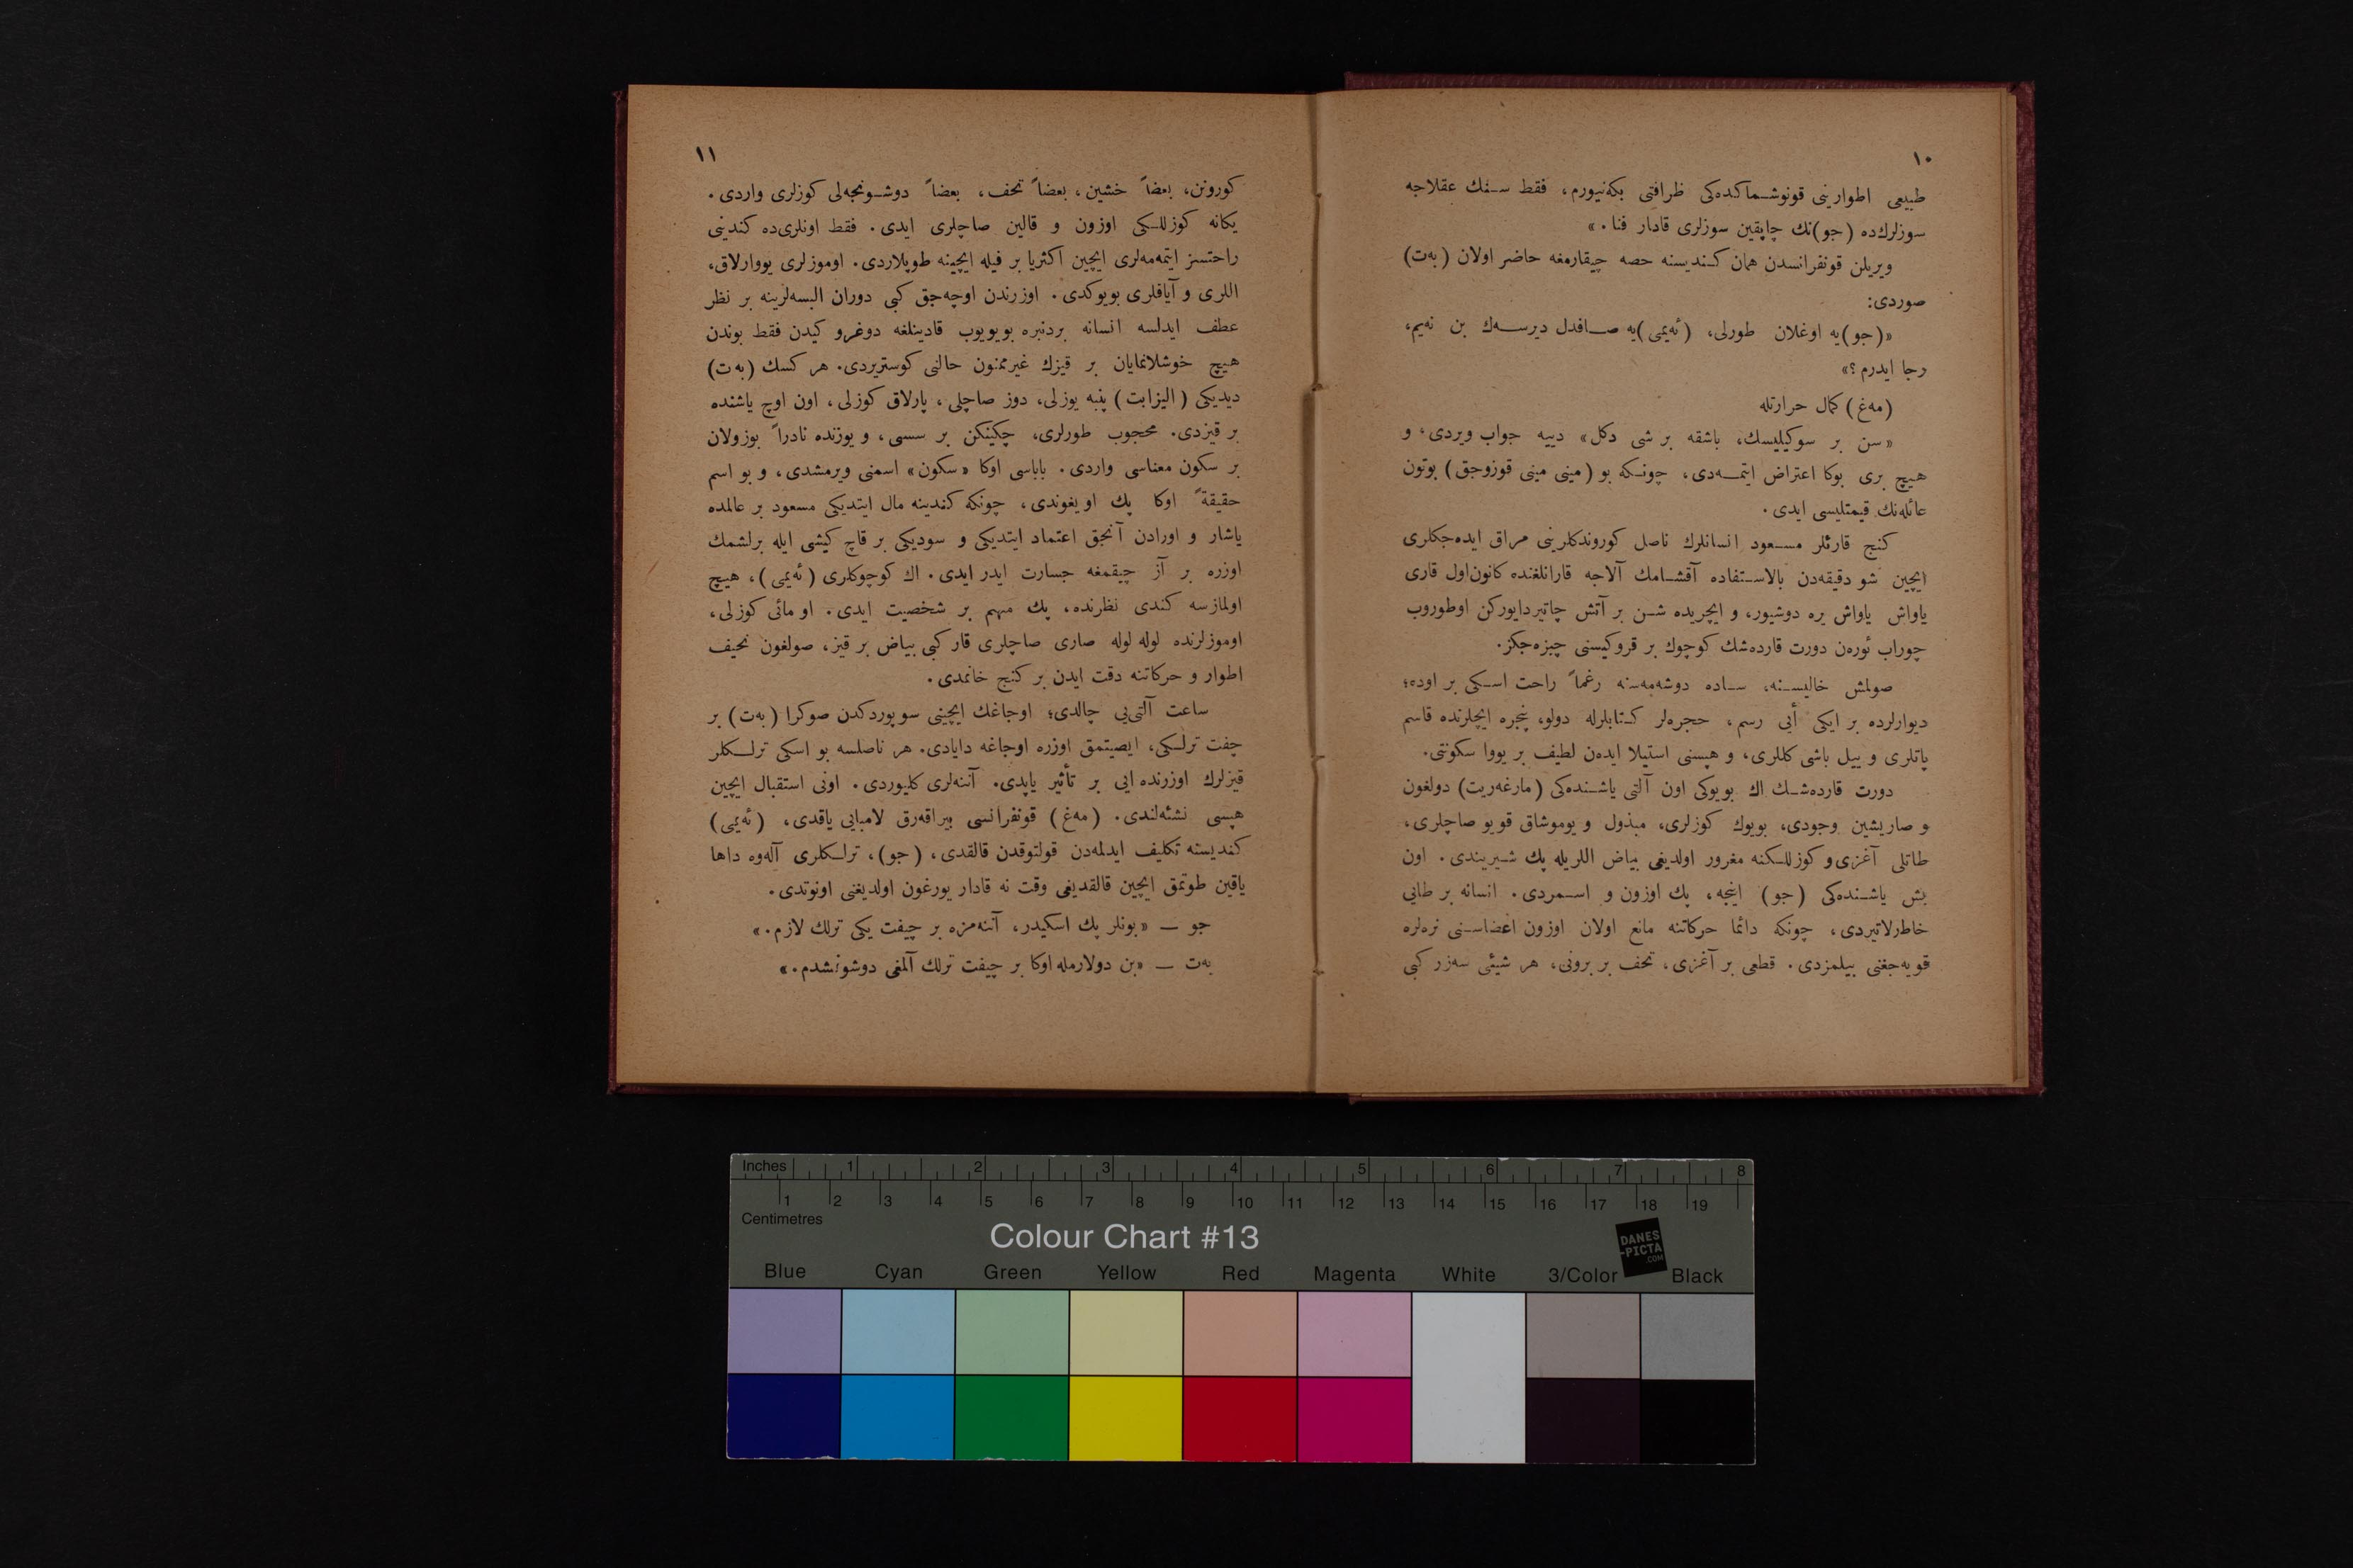 ١٠
طبیعی اطوارینی قونوشماکده‌کی ظرافتی بکه‌نیورم، فقط سنك عقلاجه
سوزلرك‌ده (جو)نك چاپقین سوزلری قادار فنا.»
ویریلن قونفرانسدن همان کندیسنه حصه چیقارمغه حاضر اولان (به‌ت)
صوردی:
«(جو)یه اوغلان طورلی، (ئه‌یمی)یه صافدل دیرسه‌ك بن نه‌یم،
رجا ایدرم؟»
(مه‌غ) کمال حرارتله
«سن بر سوکیلیسك، باشقه بر شی دکل» دییه جواب ویردی، و
هیچ بری بوکا اعتراض ایتمه‌دی، چونکه بو (مینی مینی قوزوجق) بوتون
عائله‌نك قیمتلیسی ایدی.
کنج قارئلر مسعود انسانلرك ناصل کوروندکلرینی مراق ایده‌جکلری
ایچین شو دقیقه‌دن بالاستفاده آقشامك آلاجه قارانلغنده کانون‌اول قاری
یاواش یاواش یره دوشیور، و ایچریده شن بر آتش چاتیردایورکن اوطوروب
چوراب ئوره‌ن دورت قارده‌شك کوچوك بر قروکیسنی چیزه‌جکز.
صولمش خالیسنه، ساده دوشه‌مه‌سنه رغماً راحت اسکی بر اوده؛
دیوارلرده بر ایکی أیی رسم، حجره‌لر کتابلرله دولو، پنجره ایچلرنده قاسم
پاتلری و ییل باشی کللری، و هپسنی استیلا ایده‌ن لطیف بر یووا سکونتی.
دورت قارده‌شك اك بویوکی اون آلتی یاشنده‌کی (مارغه‌ریت) دولغون
و صاریشین وجودی، بویوك کوزلری، مبذول و یوموشاق قویو صاچلری،
طاتلی آغزی و کوزللکنه مغرور اولدیغی بیاض اللریله پك شیریندی. اون
بش یاشنده‌کی (جو) اینجه، پك اوزون و اسمردی. انسانه بر طایی
خاطرلاتیردی، چونکه دائما حرکاتنه مانع اولان اوزون اعضاسنی نره‌لره
قویه‌جغنی بیلمزدی. قطعی بر آغزی، تحف بر برونی، هر شیئی سه‌زر کبی
١١
کورونن، بعضاً خشین، بعضاً تحف، بعضاً دوشونجه‌لی کوزلری واردی.
یکانه کوزللکی اوزون و قالین صاچلری ایدی. فقط اونلری‌ده کندینی
راحتسز ایتمه‌مه‌لری ایچین اکثریا بر فیله ایچینه طوپلاردی. اوموزلری یووارلاق،
اللری و آیاقلری بویوکدی. اوزرندن اوچه‌جق کبی دوران البسه‌لرینه بر نظر
عطف ایدلسه انسانه بردنبره بویویوب قادینلغه دوغرو کیدن فقط بوندن
هیچ خوشلانمایان بر قیزك غیرممنون حالنی کوستریردی. هر کسك (به‌ت)
دیدیکی (الیزابت) پنبه یوزلی، دوز صاچلی، پارلاق کوزلی، اون اوچ یاشنده
بر قیزدی. محجوب طورلری، چکینکن بر سسی، و یوزنده نادراً بوزولان
بر سکون معناسی واردی. باباسی اوکا «سکون» اسمنی ویرمشدی، و بو اسم
حقیقةً اوکا پك اویغوندی، چونکه کندینه مال ایتدیکی مسعود بر عالمده
یاشار و اورادن آنجق اعتماد ایتدیکی و سودیکی بر قاچ کیشی ایله برلشمك
اوزره بر آز چیقمغه جسارت ایدر ایدی. اك کوچوکلری (ئه‌یمی)، هیچ
اولمازسه کندی نظرنده، پك مهم بر شخصیت ایدی. او مائی کوزلی،
اوموزلرنده لوله لوله صاری صاچلری قار کبی بیاض بر قیز، صولغون نحیف
اطوار و حرکاتنه دقت ایدن بر کنج خانمدی.
ساعت آلتی‌یی چالدی؛ اوجاغك ایچینی سوپوردکدن صوکرا (به‌ت) بر
چفت ترلکی، ایصیتمق اوزره اوجاغه دایادی. هر ناصلسه بو اسکی ترلکلر
قیزلرك اوزرنده ایی بر تأثیر یاپدی. آننه‌لری کلیوردی. اونی استقبال ایچین
هپسی نشئه‌لندی. (مه‌غ) قونفرانسی بیراقه‌رق لامبایی یاقدی، (ئه‌یمی)
کندیسنه تکلیف ایدلمه‌دن قولتوقدن قالقدی، (جو)، ترلکلری آله‌وه داها
یاقین طوتمق ایچین قالقدیغی وقت نه قادار یورغون اولدیغنی اونوتدی.
جو — «بونلر پك اسکیدر، آننه‌مزه بر چیفت یکی ترلك لازم.»
به‌ت — «بن دولارمله اوکا بر چیفت ترلك آلمغی دوشونمشدم.»
Inches 1 2 3 4 5 6 7 8
1 2 3 4 5 6 7 8 9 10 11 12 13 14 15 16 17 18 19
Centimetres
Colour Chart #13
DANES
-PICTA
.COM
Blue Cyan Green Yellow Red Magenta White 3/Color Black